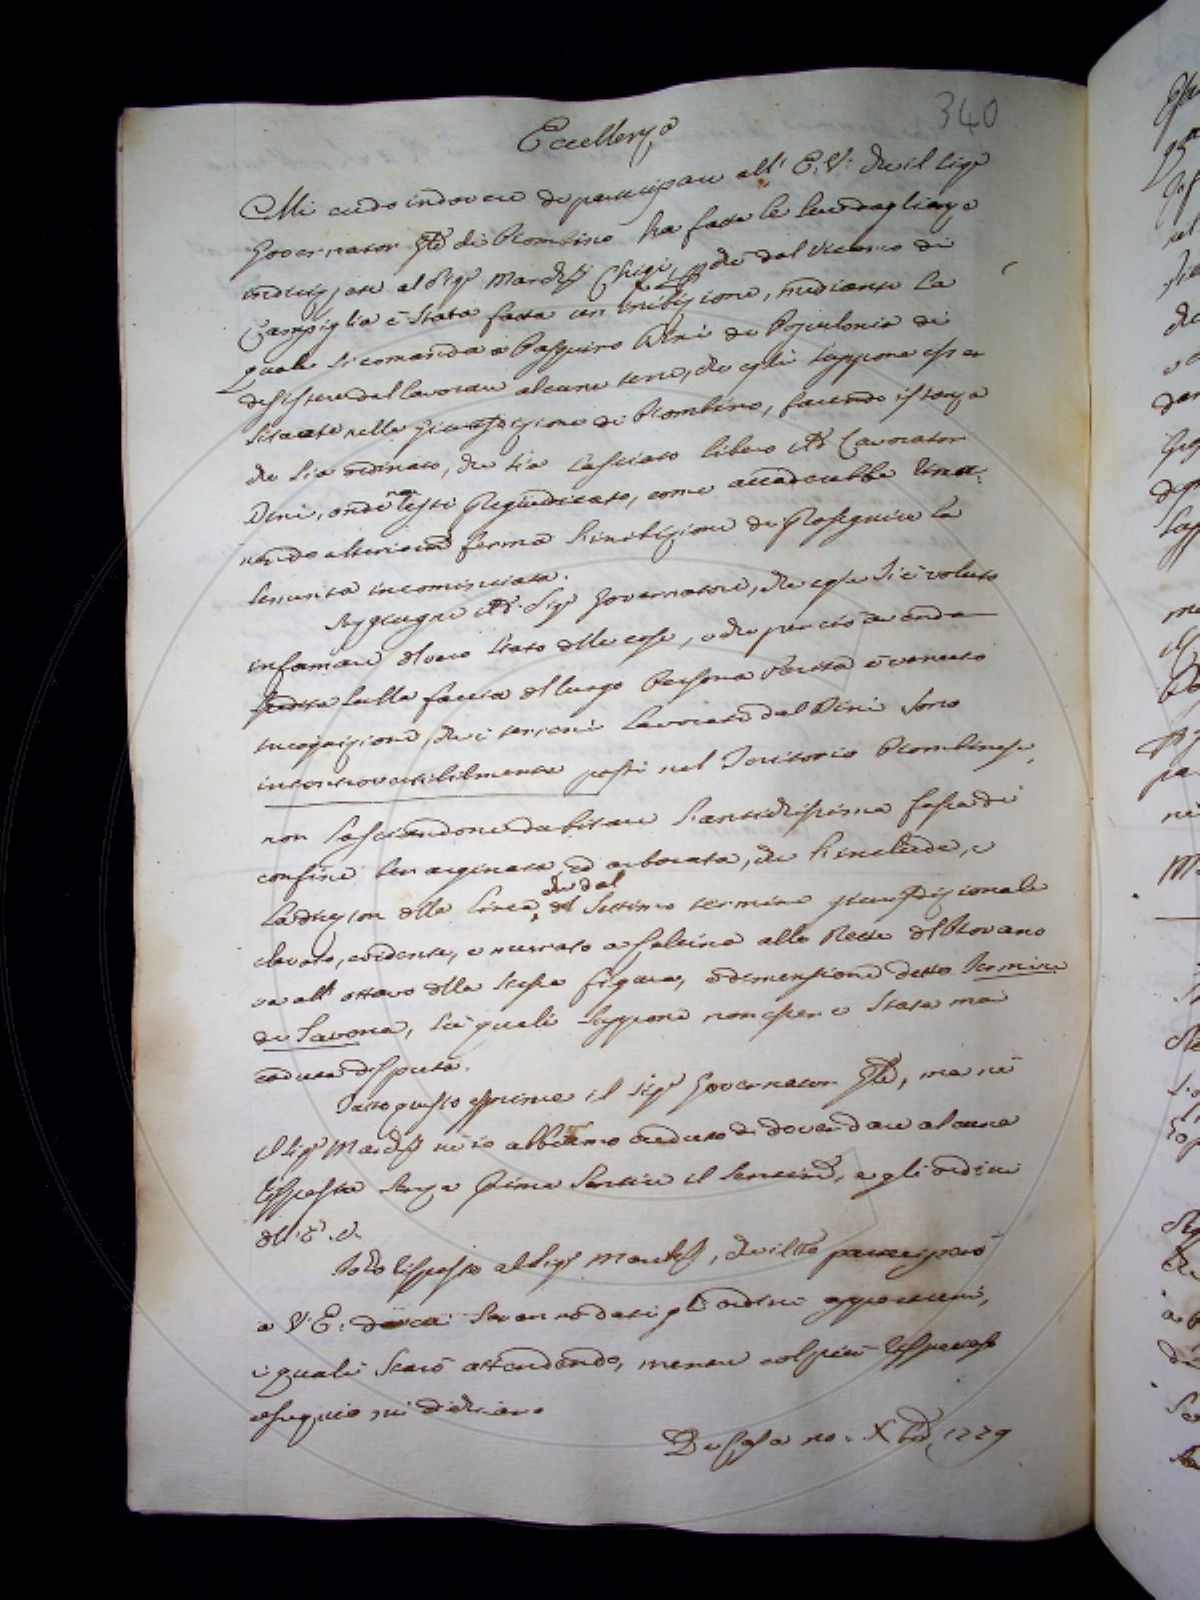 340
Eccellenza
Mi credo in dovere di participare all' E. V. che il Sigr
Governator Gle di Piombino ha fatte le
indirizzate al Sigr March. Chigi, che dal Vicario di
Campiglia è stata fatta un' inibizione, mediante la
quale si comanda a Pasquino Dini di Populonia di
desistere dal lavorare alcune terre, che egli suppone esser
situate nella Giurisdizione di Piombino, facendo istanza
che sia ordinato, che sia lasciato libero il Lavorator
Dini, onde non resti pregiudicato, come accaderebbe
ferma l'inibizione di proseguire la
sementa incominciata.
Aggiugne il Sigr Governatore, che egli si è voluto
informare del vero stato delle cose, e che perciò avendo
spedita sulla faccia del luogo Persona perita è venuto
in cognizione, che i terreni lavorati dal Dini sono
incontrovertibilmente posti nel Territorio Piombinese,
non lasciandone dubitare l'antichissima fossa di
confine arginata, ed arborata, che l'include, e
la direzion della linea, che dal
del settimo termine giurisdizionale
elevato, evidente, e murato a calcina alle
va all' ottavo della stessa figura, e dimensione detto Termine
di Savona, su' quali suppone non essere stata mai
caduta disputa.
Tutto questo esprime il Sigr Governator Gle, ma nè
il Sigr March. nè io abbiamo creduto di dover dare alcuna
risposta senza prima sentire il sentimento, e gli ordini
dell' E. V.
Solo risposto al Sigr March., che il tutto participerò
a V. E. da cui saranno dati gli ordini opportuni,
i quali starò attendendo, mentre col più
ossequio mi dichiaro
Di Casa 10. Xbre 1779